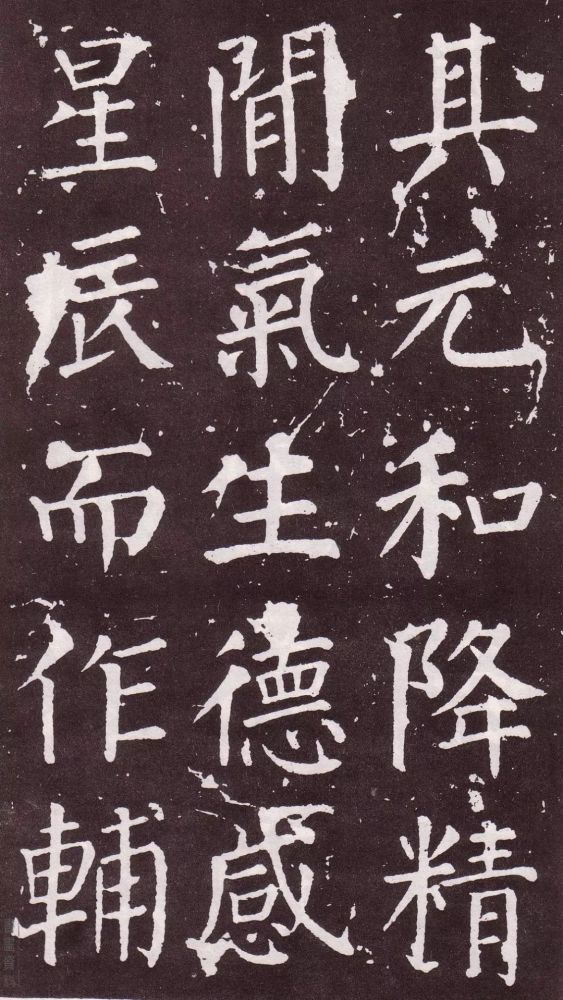 其元和降精
間氣生德感
星辰而作輔